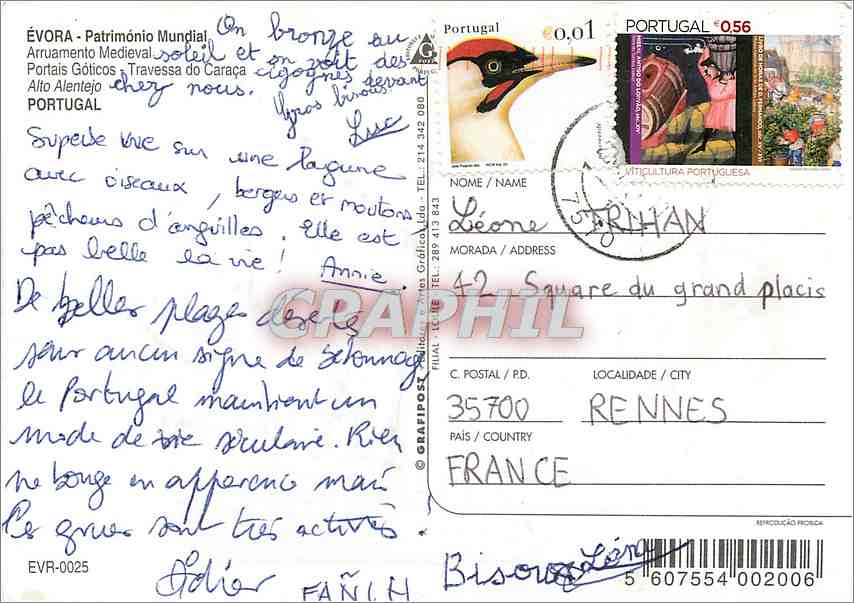 ÉVORA - Património Mundial
Arruamento Medieval
Portais Góticos , Travessa do Caraça
Alto Alentejo
PORTUGAL
On bronze au
soleil et on voit des
cigognes devant
chez nous.
Gros bisous
Luc
Superbe vue sur une lagune
avec oiseaux, bergers et moutons
pêcheurs d'anguilles. Elle est
pas belle la vie!
Annie.
De belles plages désertes
sans aucun signe de bétonnage
le Portugal maintient un
mode de vie séculaire. Rien
ne bouge en apparence mais
les grues sont très actives.
FAÑCH
Bisous Léna
EVR-0025
© GRAFIPOST - Editores e Artes Gráficas, Lda - TEL.: 214 342 080
FILIAL - LOULÉ - TEL.: 289 413 843
CRAPHIL
Portugal
€0,01
PORTUGAL €0,56
VITICULTURA PORTUGUESA
NOME / NAME
Léone TRIHAN
MORADA / ADDRESS
42 Square du grand placis
C. POSTAL / P.D.
LOCALIDADE / CITY
35700
RENNES
PAÍS / COUNTRY
FRANCE
REPRODUÇÃO PROIBIDA
5 607554 002006